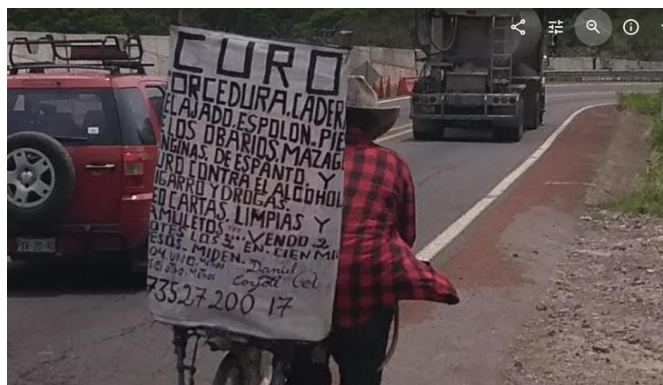 CURO
TORCEDURA.CADER
RELAJADO.ESPOLON.PIE
LOS OBARIOS.MAZAG
ANGINAS.DE ESPANTO. Y
CURO CONTRA EL ALCOHOL
CIGARRO Y DROGAS
LEO CARTAS, LIMPIAS Y
AMULETOS... VENDO 2
LOTES LOS 3. EN. CIEN MIL
PESOS. MIDEN. Daniel
UNO. Cel
73527200 17